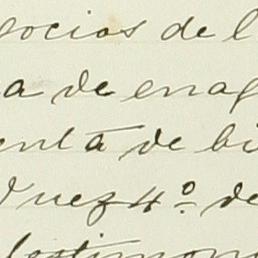 gocios de l
a de enag
enta de bi
Juez 4º de
testimon